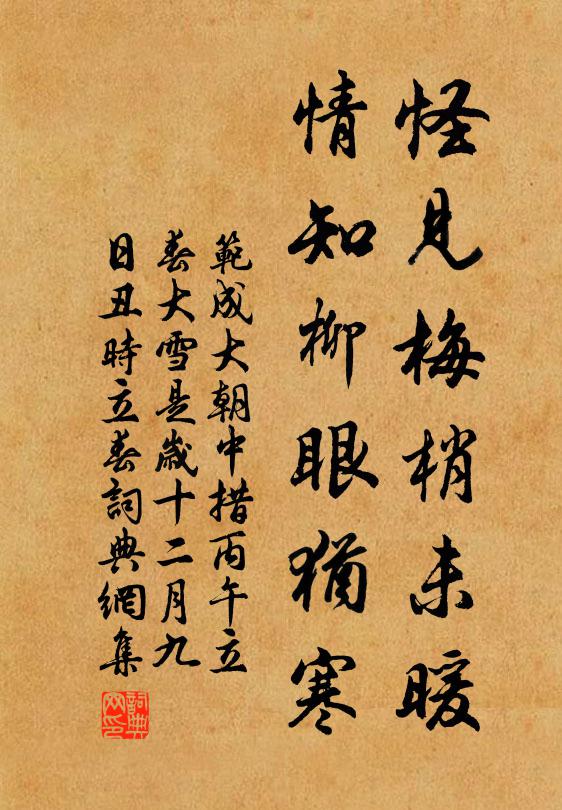 怪見梅梢未暖
情知柳眼猶寒
範成大朝中措丙午立
春大雪是歲十二月九
日丑時立春詞典網集
詞典网印